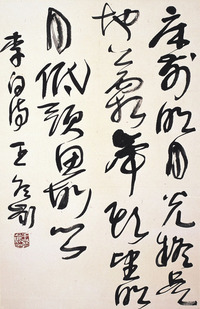 床前明月光疑是
地上霜舉頭望明
月低頭思故鄉
李白詩 王冬齡